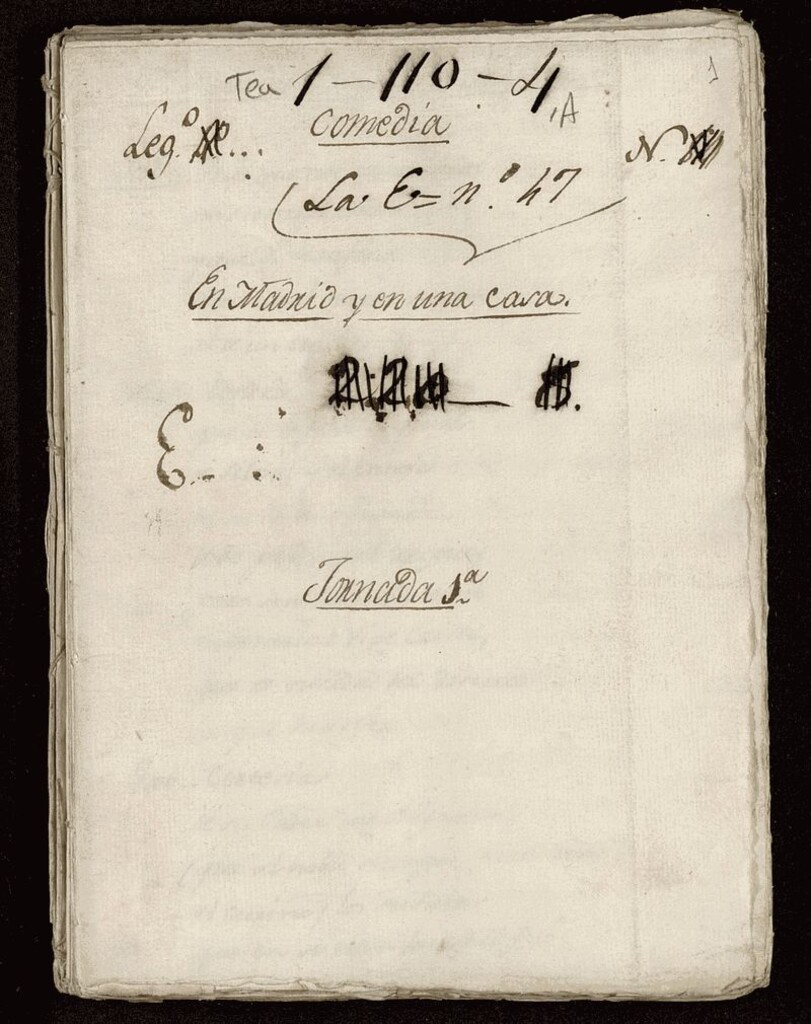 Tea 1-110-4, A
1
Comedia
Leg.º ... N.
La E= n.º 47
En Madrid y en una casa.
E.
Jornada 1.ª